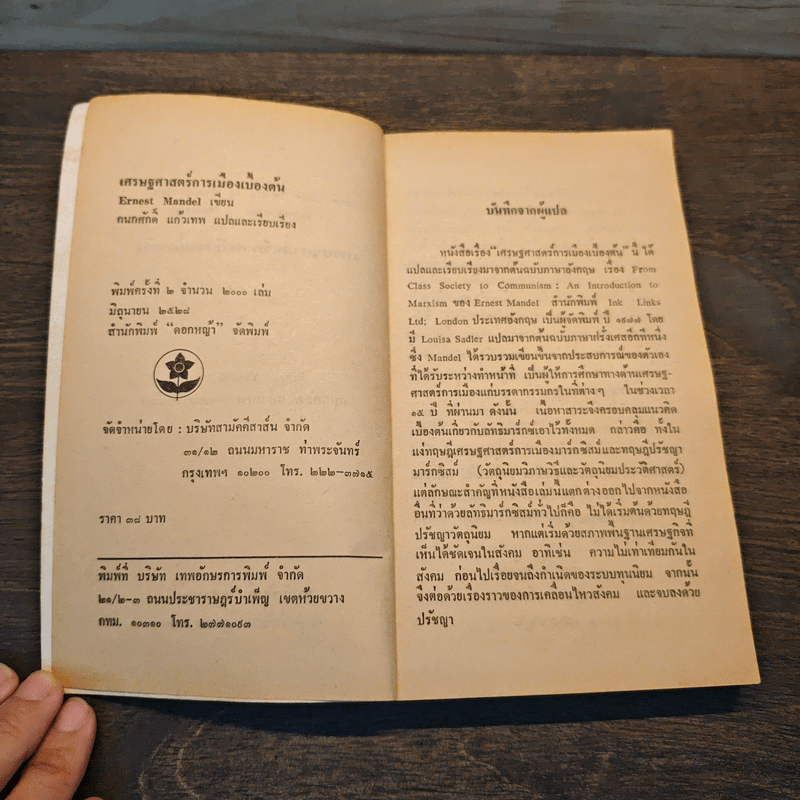 เศรษฐศาสตร์การเมืองเบื้องต้น
Ernest Mandel เขียน
กนกศักดิ์ แก้วเทพ แปลและเรียบเรียง
พิมพ์ครั้งที่ ๒ จำนวน ๒๐๐๐ เล่ม
มิถุนายน ๒๕๒๘
สำนักพิมพ์ "ดอกหญ้า" จัดพิมพ์
จัดจำหน่ายโดย : บริษัทสามัคคีสาส์น จำกัด
๓๑/๑๒ ถนนมหาราช ท่าพระจันทร์
กรุงเทพฯ ๑๐๒๐๐ โทร. ๒๒๒-๓๗๑๕
ราคา ๓๘ บาท
พิมพ์ที่ บริษัท เทพอักษรการพิมพ์ จำกัด
๒๑/๒-๓ ถนนประชาราษฎร์บำเพ็ญ เขตห้วยขวาง
กทม. ๑๐๓๑๐ โทร. ๒๗๗๑๐๙๓
บันทึกจากผู้แปล
หนังสือเรื่อง "เศรษฐศาสตร์การเมืองเบื้องต้น" นี้ ได้
แปลและเรียบเรียงมาจากต้นฉบับภาษาอังกฤษ เรื่อง From
Class Society to Communism : An Introduction to
Marxism ของ Ernest Mandel สำนักพิมพ์ Ink Links
Ltd; London ประเทศอังกฤษ เป็นผู้จัดพิมพ์ ปี ๑๙๗๗ โดย
มี Louisa Sadler แปลมาจากต้นฉบับภาษาฝรั่งเศสอีกทีหนึ่ง
ซึ่ง Mandel ได้รวบรวมเขียนขึ้นจากประสบการณ์ของตัวเอง
ที่ได้รับระหว่างทำหน้าที่ เป็นผู้ให้การศึกษาทางด้านเศรษฐ-
ศาสตร์การเมืองแก่บรรดากรรมกรในที่ต่างๆ ในช่วงเวลา
๑๕ ปี ที่ผ่านมา ดังนั้น เนื้อหาสาระจึงครอบคลุมแนวคิด
เบื้องต้นเกี่ยวกับลัทธิมาร์กซ์เอาไว้ทั้งหมด กล่าวคือ ทั้งใน
แง่ทฤษฎีเศรษฐศาสตร์การเมืองมาร์กซิสม์และทฤษฎีปรัชญา
มาร์กซิสม์ (วัตถุนิยมวิภาษวิธีและวัตถุนิยมประวัติศาสตร์)
แต่ลักษณะสำคัญที่หนังสือเล่มนี้แตกต่างออกไปจากหนังสือ
อื่นที่ว่าด้วยลัทธิมาร์กซิสม์ทั่วไปก็คือ ไม่ได้เริ่มต้นด้วยทฤษฎี
ปรัชญาวัตถุนิยม หากแต่เริ่มด้วยสภาพพื้นฐานเศรษฐกิจที่
เห็นได้ชัดเจนในสังคม อาทิเช่น ความไม่เท่าเทียมกันใน
สังคม ก่อนไปเรื่อยจนถึงกำเนิดของระบบทุนนิยม จากนั้น
จึงต่อด้วยเรื่องราวของการเคลื่อนไหวสังคม และจบลงด้วย
ปรัชญา